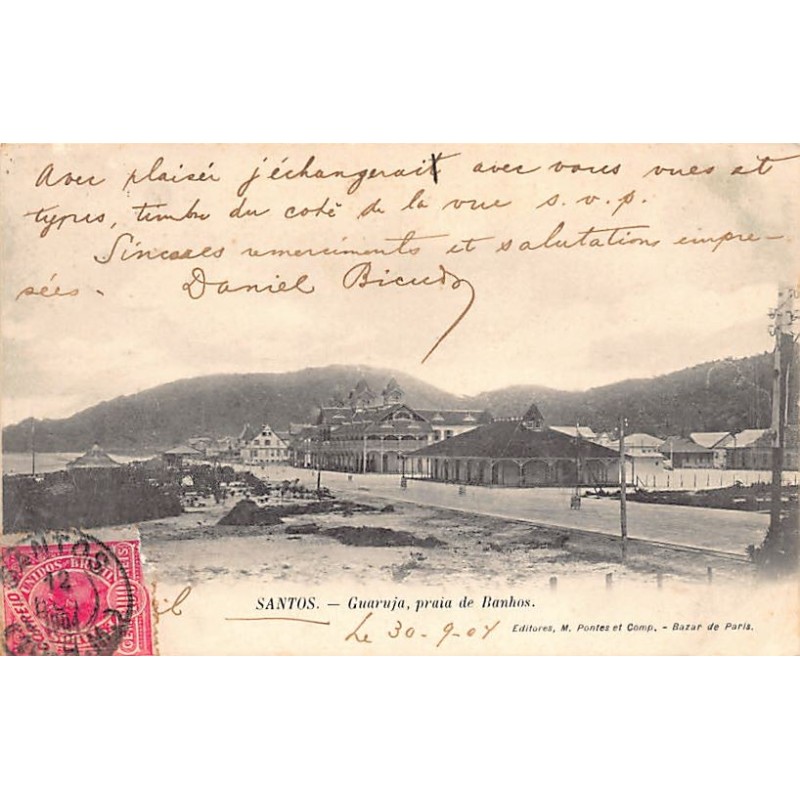 Avec plaisir j'échangerait avec vous vues et
types, timbre du coté de la vue s.v.p.
Sincères remerciments et salutations empre-
sées. Daniel Bicudo
SANTOS. — Guaruja, praia de Banhos.
Le 30-9-04
Editores, M. Pontes et Comp. - Bazar de Paris.
SANTOS
12
CORREIO
UNIDOS